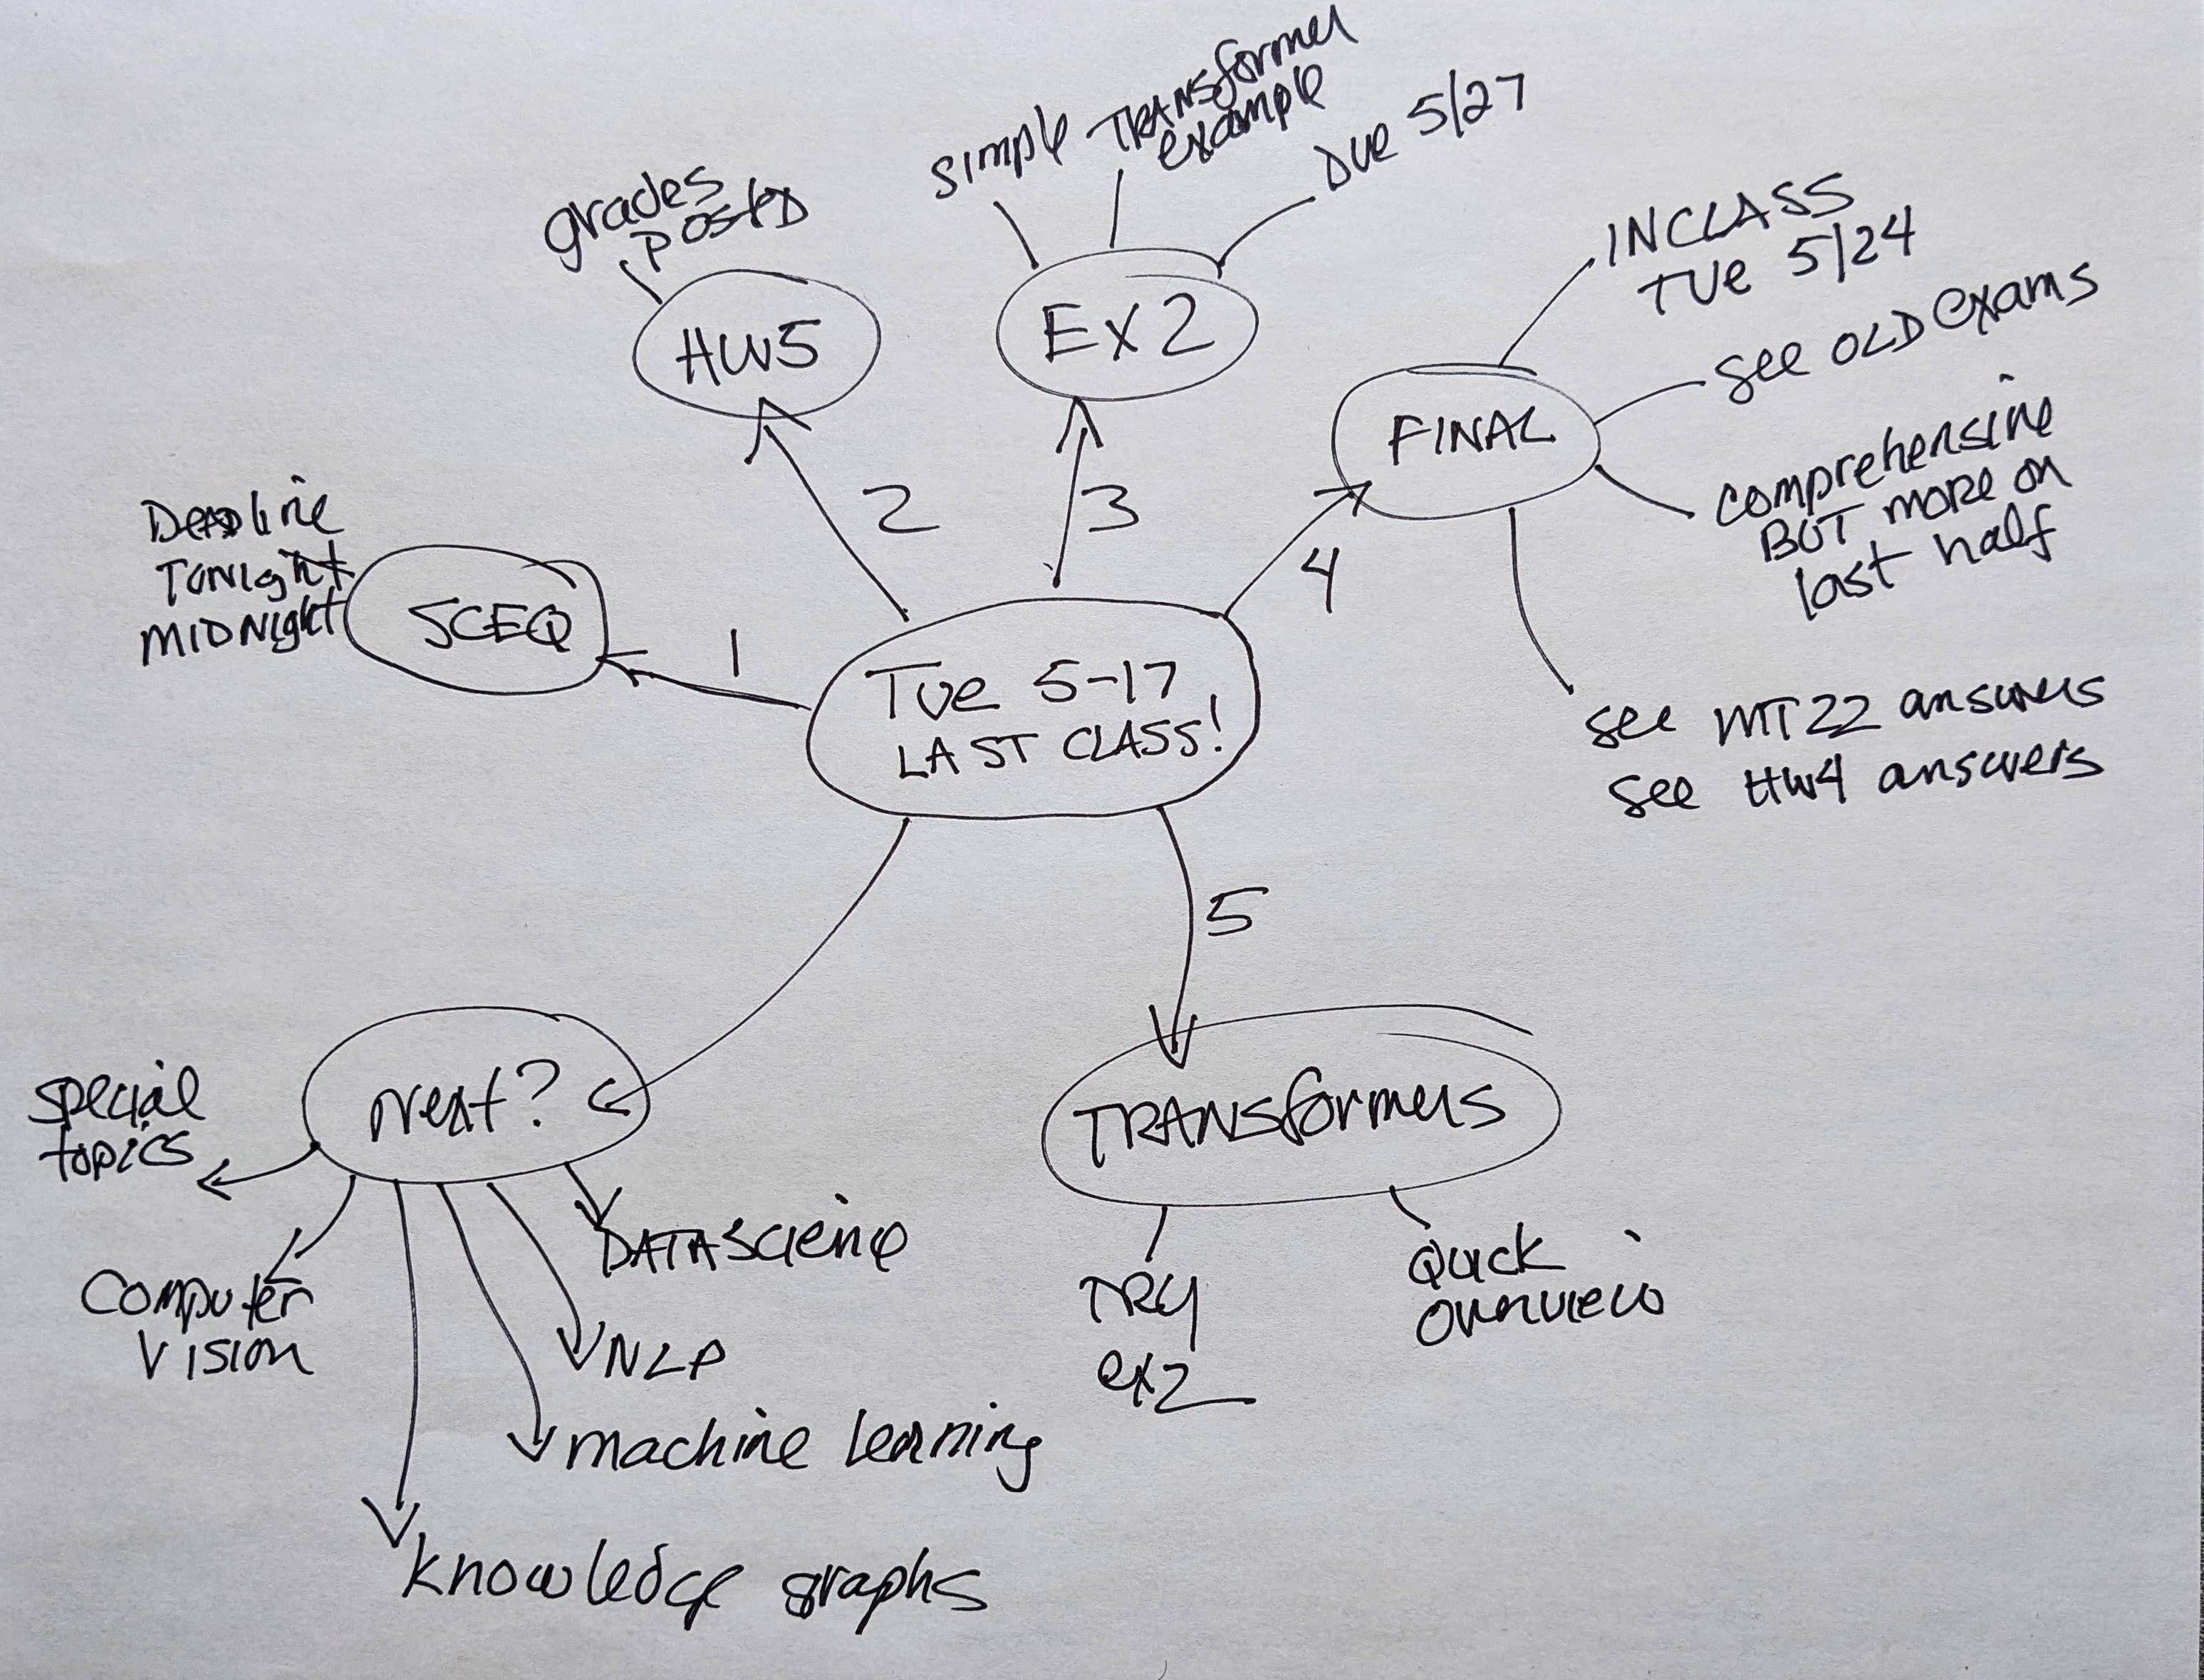 simple TRANSformer
example
Due 5/27
grades
posteD
INCLASS
TUe 5/24
HW5
EX2
see OLD exams
FINAL
comprehensive
BUT more on
last half
2
3
4
Deadline
TONight
MIDNight
SCEQ
1
Tue 5-17
LAST CLASS!
see MT22 answers
see HW4 answers
5
next?
TRANSformers
special
topics
DATA Science
Quick
overview
TRY
ex2
Computer
Vision
NLP
machine learning
knowledge graphs